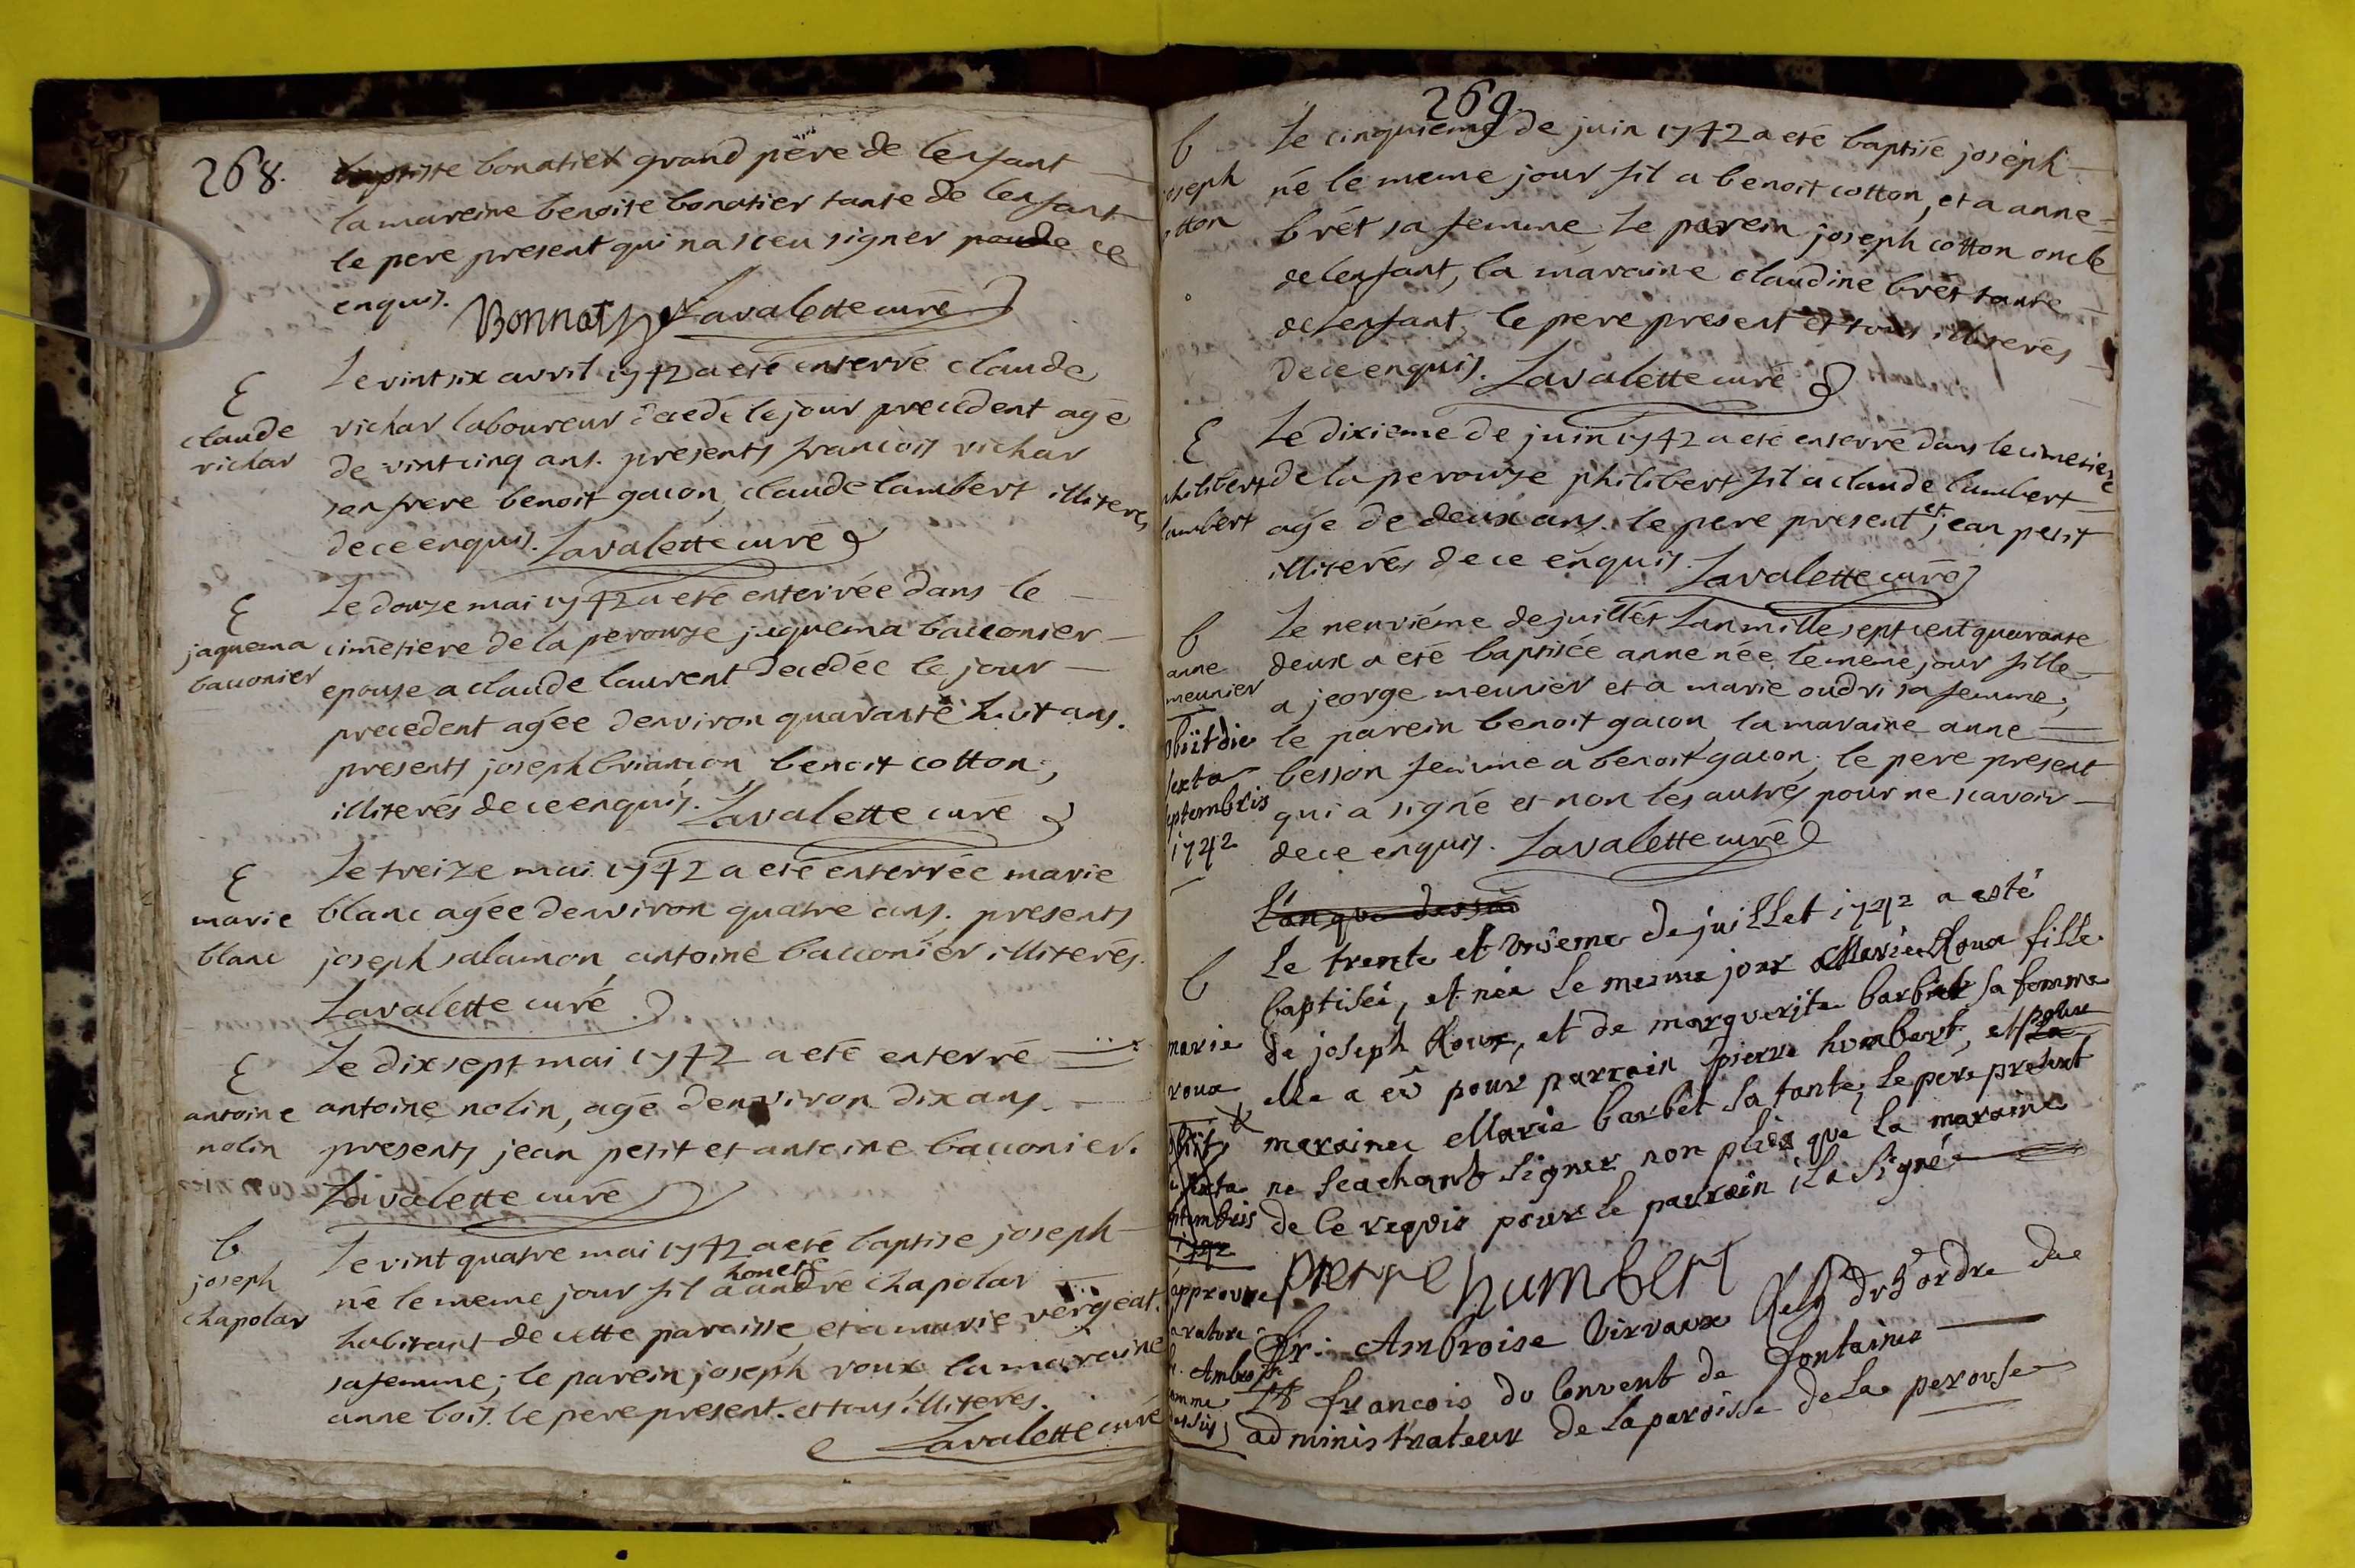 268.
baptiste bonatier grand père de lenfant
la mareine benoite bonatier tante de lenfant
le pere present qui na sceu signer de ce
enquis.
Bonnatier Lavalette curé
E
claude
richar
Le vint six avril 1742 a eté enterré claude
richar laboureur decedé le jour precedent agé
de vint cinq ans. presents francois richar
son frere benoit gacon, claude lambert illiterés
de ce enquis. Lavalette curé
E
jaquema
bacconier
Le douze mai 1742 a eté enterrée dans le
cimetiere de la perouze jaquema bacconier
epouse a claude laurent decedée le jour
precedent agée denviron quarante huit ans.
presents joseph briancon, benoit cotton,
illiterés de ce enquis. Lavalette curé
E
marie
blanc
Le treize mai 1742 a eté enterrée marie
blanc agée denviron quatre ans, presents
joseph salamon, antoine bacconier illiterés.
Lavalette curé
E
antoine
nolin
Le dix sept mai 1742 a eté enterré
antoine nolin, agé denviron dix ans.
presents jean petit et antoine bacconier.
Lavalette curé
b
joseph
chapolar
Le vint quatre mai 1742 a eté baptise joseph
né le meme jour fil a honeté andré chapolar
habitant de cette paroisse et a marie vergeat.
sa femme; le parein joseph roux la maraine
anne bois. le pere present. et tous illiterés.
Lavalette curé
269.
b
joseph
otton
Le cinquieme de juin 1742 a eté baptisé joseph
né le meme jour fil a benoit cotton, et a anne
brét sa femme, Le parein joseph cotton oncle
de lenfant, la maraine claudine brét tante
de lenfant, le pere present et tous illiterés
de ce enquis. Lavalette curé
E
philibert
lambert
Le dixieme de juin 1742 a eté enterré dans le cimetiere
de la perouze philibert fil a claude lambert
agé de deux ans. le pere present et jean petit
illiterés de ce enquis. Lavalette curé
b
anne
meunier
obiit die
sexta
septembris
1742
Le neuviéme de juillét Lan mille sept cent quarante
deux a eté baptisée anne née le meme jour fille
a jeorge meunier et a marie oudri sa femme;
le parein benoit gacon, la maraine anne
besson femme a benoit gacon; le pere present
qui a signé et non les autres pour ne scavoir
de ce enquis. Lavalette curé
L'an que dessus
b
marie
roux
obiit
sexta
septembris
1742
approuve
rature
fr. Ambroise
comme
dessus
Le trente et unieme de juillet 1742 a esté
baptiseé, et neé le mesme jour Marie Roux fille
de joseph Roux, et de marguerite barbet sa femme
elle a eû pour parrain pierre humbert, et pour
maraine Marie barbét sa tante, le pere present
ne seachant signer non plus que la maraine
de ce requis pour le parrain il a signé
pierre humbert
fr. Ambroise virvaux Relg de L'ordre de
St francois du Convent de fontaines
administrateur de la paroisse de la perouse